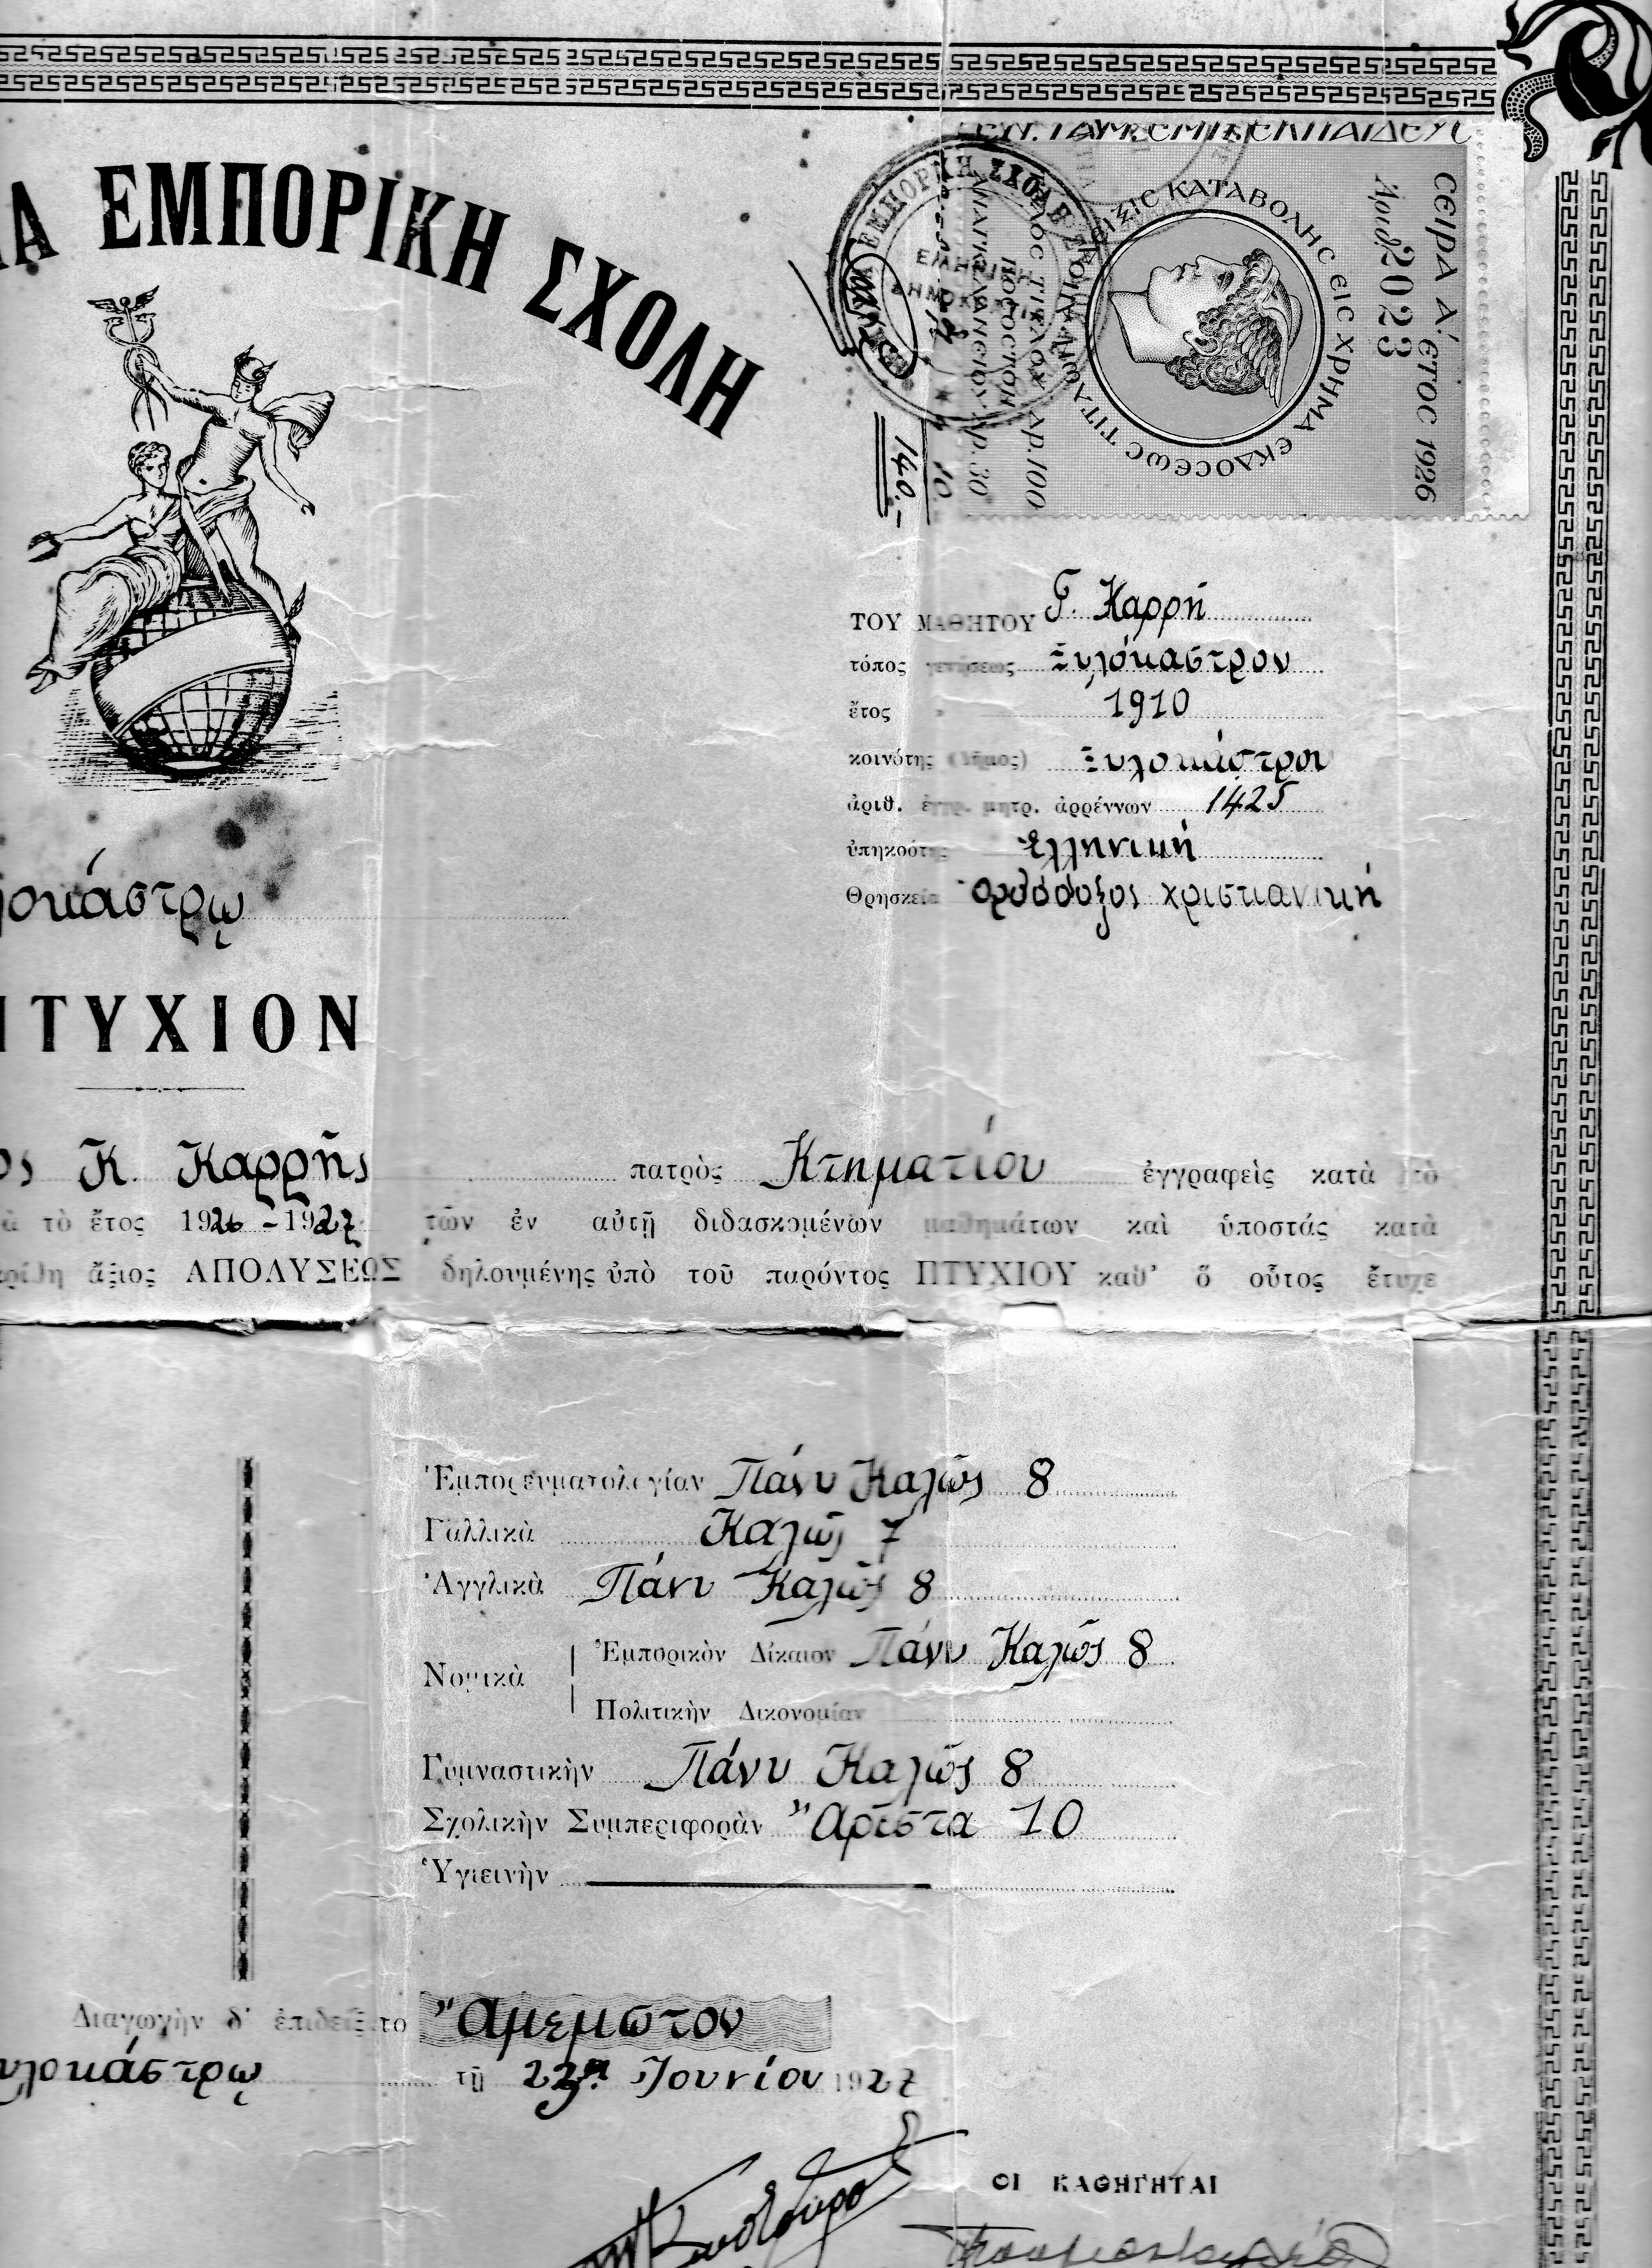 ΕΜΠΟΡΙΚΗ ΣΧΟΛΗ
ΕΜΠΟΡΙΚΗ ΣΧΟΛΗ
ϹΕΙΡΑ Α΄. ЄΤΟϹ 1926
Ἀριθ. 2023
ΚΑΤΑΒΟΛΗϹ ЄΙϹ ΧΡΗΜΑ ЄΚΔΟϹЄѠϹ ΤΙΤΛѠΝ
Δρ. 100
Δρ. 30
10
140.-
ΤΟΥ ΜΑΘΗΤΟΥ Γ. Καρρῆ
τόπος γεννήσεως Ξυλόκαστρον
ἔτος 1910
κοινότης (δῆμος) Ξυλοκάστρου
ἀριθ. ἐγγρ. μητρ. ἀρρένων 1425
ὑπηκοότης Ἑλληνική
Θρησκεία Ὀρθόδοξος χριστιανική
ΠΤΥΧΙΟΝ
Κ. Καρρῆς πατρὸς Κτηματίου ἐγγραφεὶς κατὰ τὸ
τὸ ἔτος 1926-1927 τῶν ἐν αὐτῇ διδασκομένων μαθημάτων καὶ ὑποστάς κατὰ
ἄξιος ΑΠΟΛΥΣΕΩΣ δηλουμένης ὑπὸ τοῦ παρόντος ΠΤΥΧΙΟΥ καθ' ὃ οὗτος ἔτυχε
Ἐμπορευματολογίαν Πάνυ Καλῶς 8
Γαλλικὰ Καλῶς 7
Ἀγγλικὰ Πάνυ Καλῶς 8
Νομικὰ
Ἐμπορικὸν Δίκαιον Πάνυ Καλῶς 8
Πολιτικὴν Οἰκονομίαν
Γυμναστικὴν Πάνυ Καλῶς 8
Σχολικὴν Συμπεριφορὰν Ἄριστα 10
Ὑγιεινὴν
Διαγωγὴν δ' ἐπιδείξατο Ἄμεμπτον
τῇ 23ῃ Ἰουνίου 1927
ΟΙ ΚΑΘΗΓΗΤΑΙ